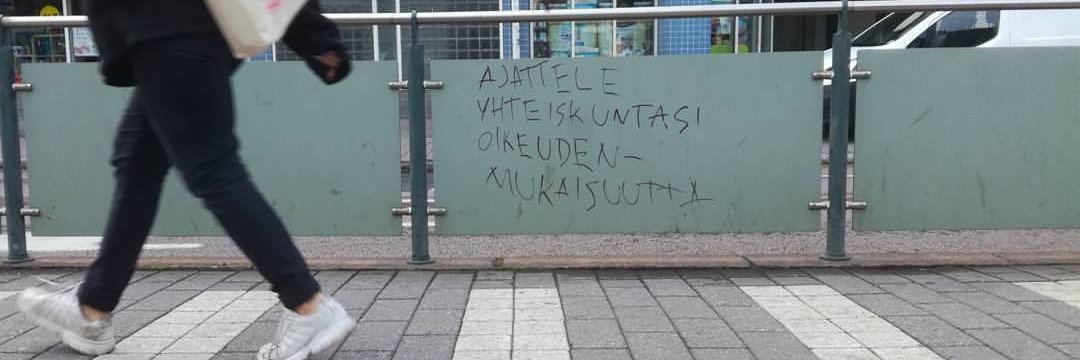 AJATTELE
YHTEISKUNTASI
OIKEUDEN-
MUKAISUUTTA